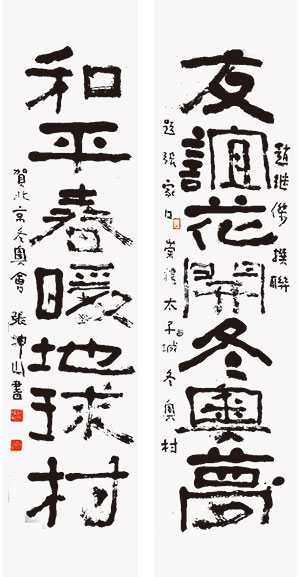 趙继 撰聯
友誼花開冬奧夢
題張家口崇禮太子城冬奧村
和平春暖地球村
賀北京冬奧會 張坤山書